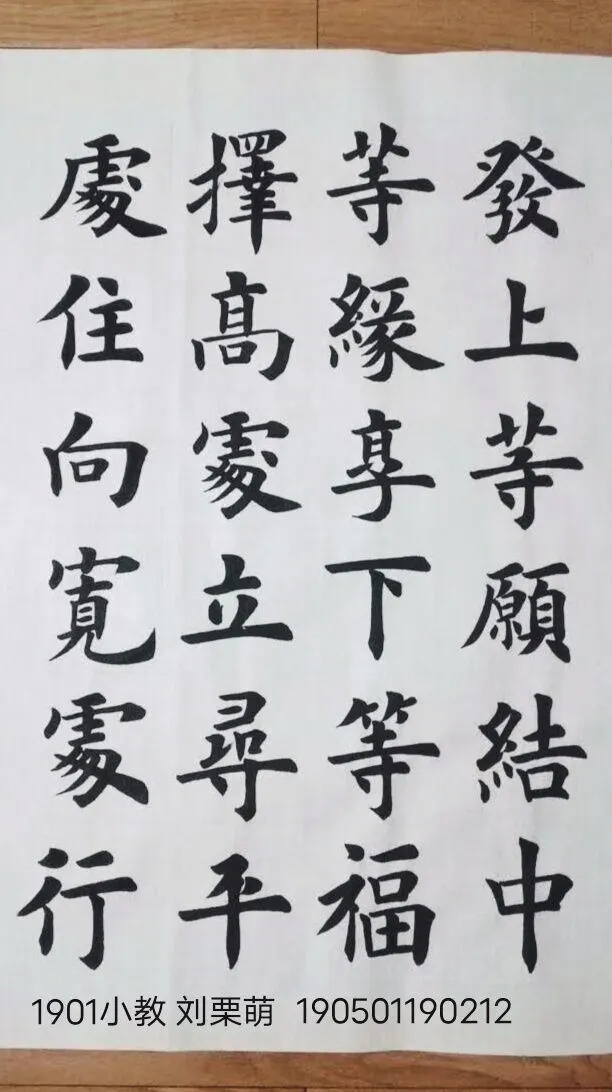 發上等願結中
等緣享下等福
擇高處立尋平
處住向寬處行
1901小教 刘栗萌 190501190212